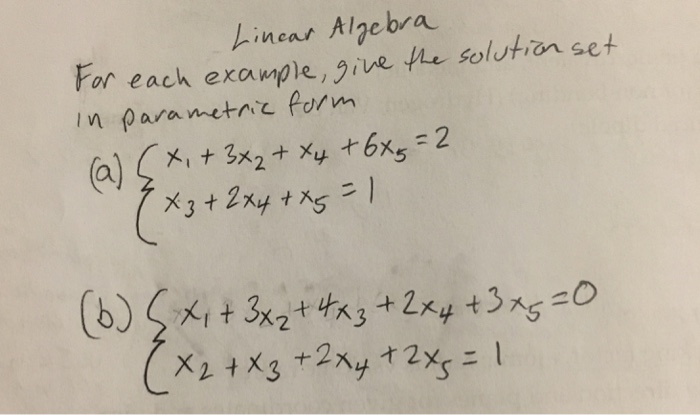 Linear Algebra
For each example, give the solution set
in parametric form
(a) { x₁ + 3x₂ + x₄ + 6x₅ = 2
x₃ + 2x₄ + x₅ = 1
(b) { x₁ + 3x₂ + 4x₃ + 2x₄ + 3x₅ = 0
x₂ + x₃ + 2x₄ + 2x₅ = 1